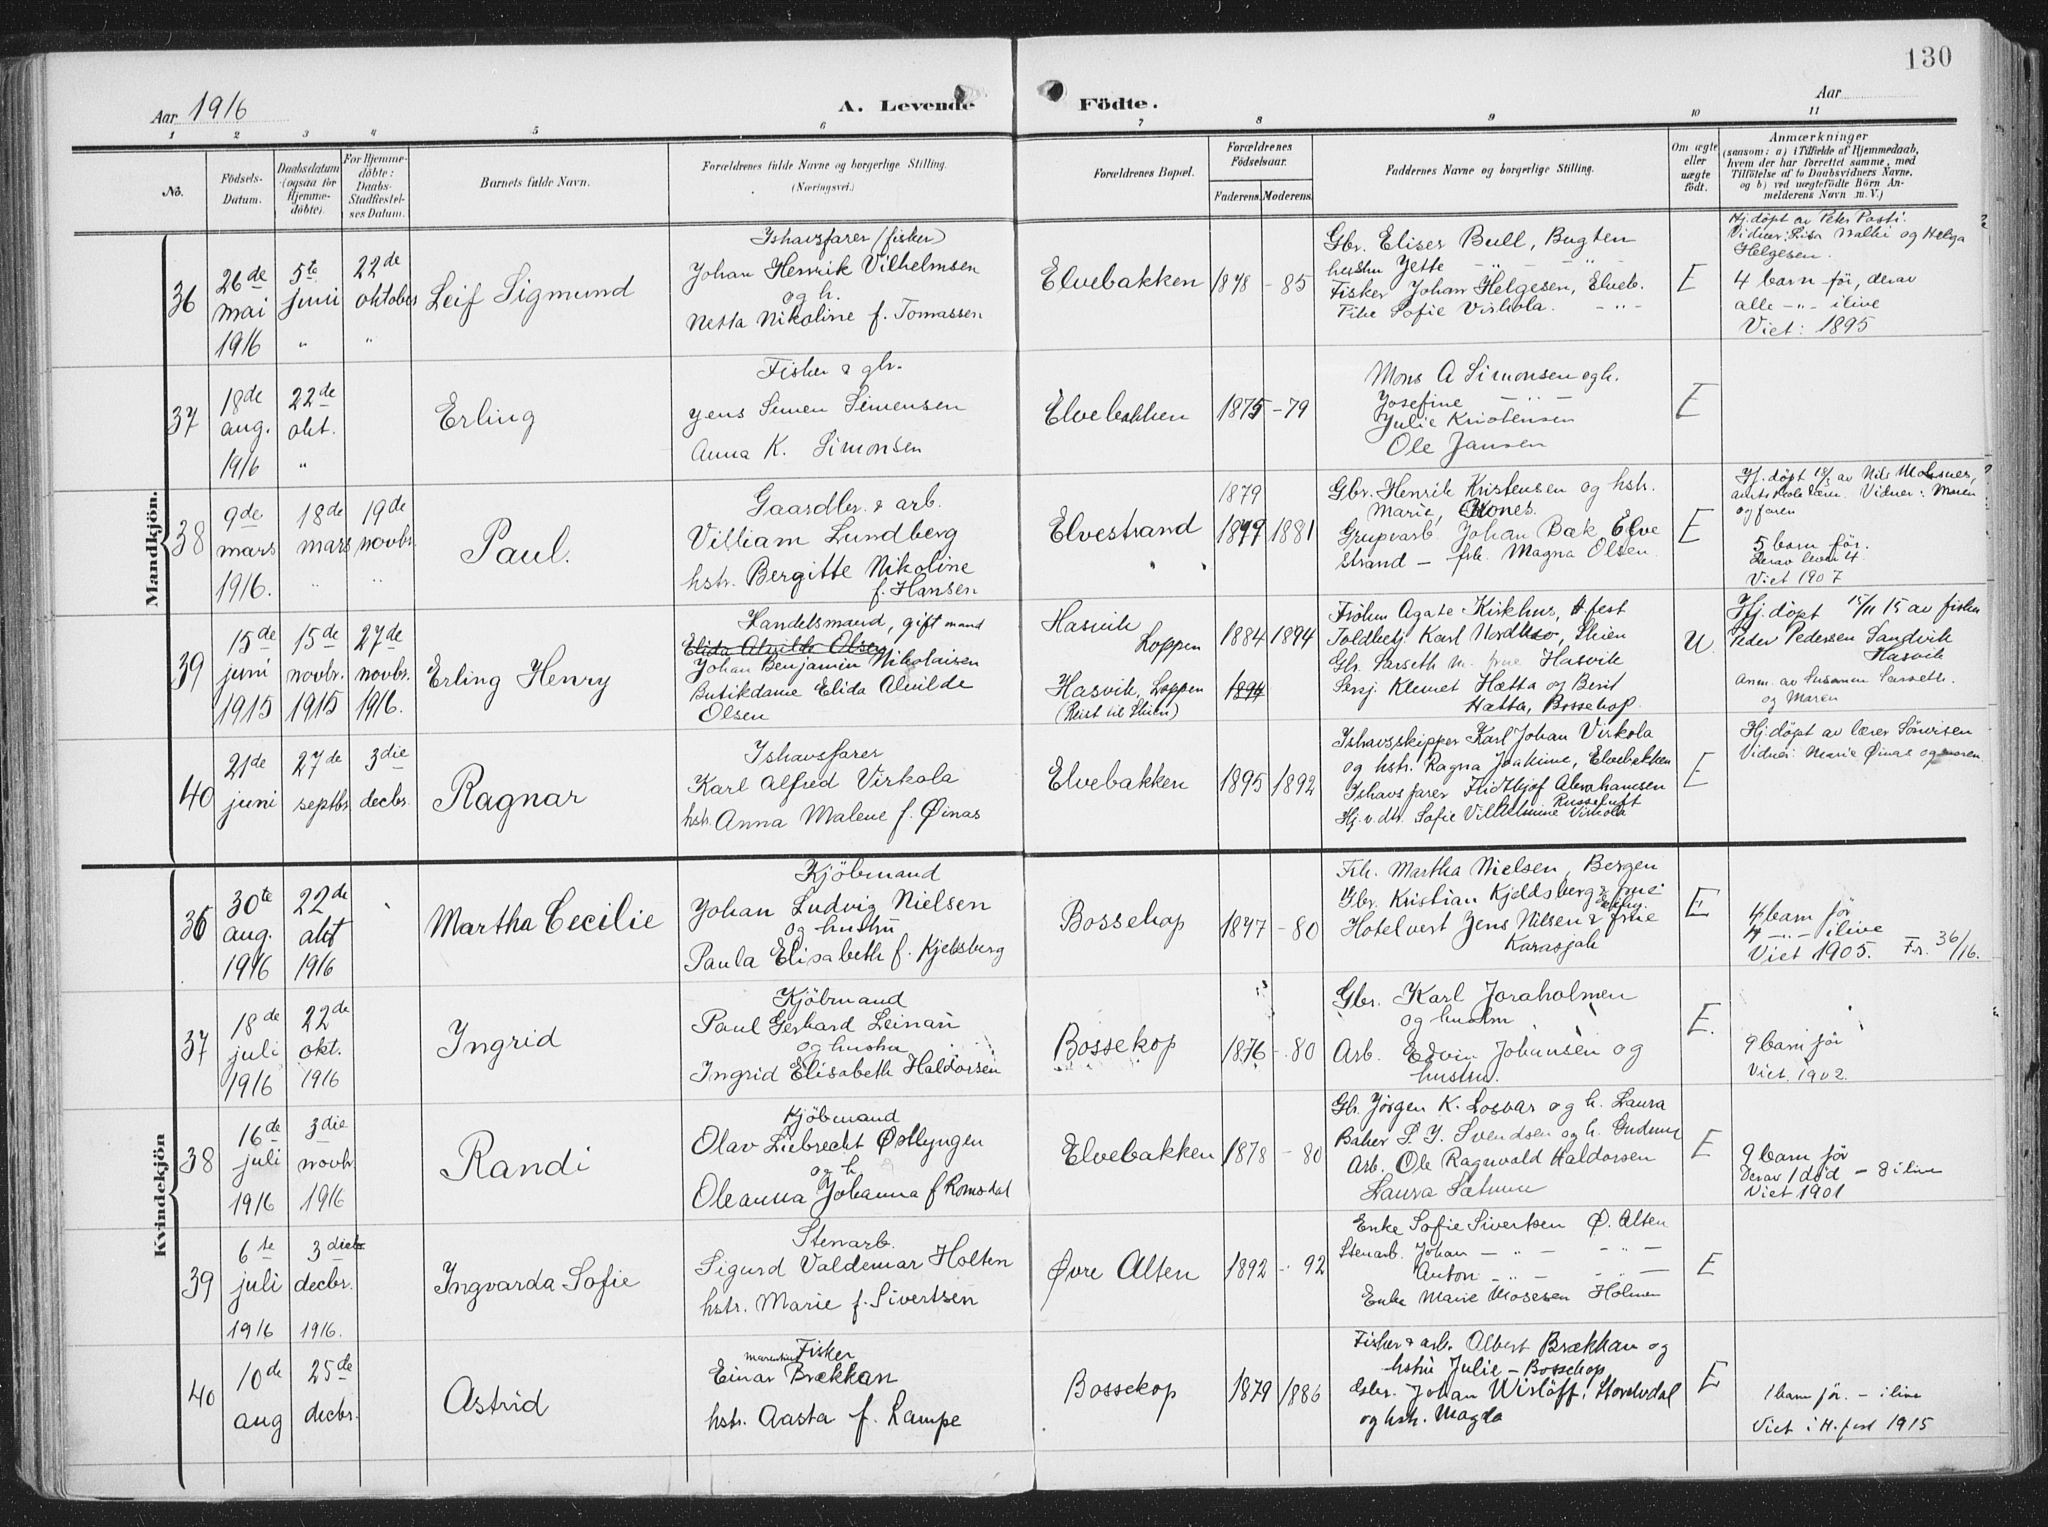 130
Aar 1916
A. Levende Födte.
Aar
1 2 3 4 5 6 7 8 9 10 11
No.
Födsels-Datum.
Daabsdatum (ogsaa for Hjemmedöbte).
For Hjemmedöbte: Daabs-Stadfæstelses Datum.
Barnets fulde Navn.
Forældrenes fulde Navne og borgerlige Stilling.
(Næringsvei.)
Forældrenes Bopæl.
Forældrenes Födselsaar.
Faderens. Moderens.
Faddernes Navne og borgerlige Stilling.
Om ægte eller uægte födt.
Anmærkninger
(saasom: a) i Tilfælde af Hjemmedaab, hvem der har forrettet samme, med Tilföielse af to Daabsvidners Navne, og b) ved uægtefödte Börn Anmelderens Navn m. V.)
Mandkjön.
36
26de mai 1916
5te juni "
22de oktober "
Leif Sigmund
Ishavsfarer (fisker)
Johan Henrik Vilhelmsen
og h.
Netta Nikoline f. Tomassen
Elvebakken
1878 - 85
Gbr. Eliser Bull, Bugten
hustru Jette - " - " -
Fisker Johan Helgesen, Elveb.
Pike Sofie Virkola. - " -
E
Hj. døpt av Peter Posti.
Vidner: Lisa Nalki og Helga
Helgesen.
4 barn før, derav
alle - " - ilive
Viet: 1895
37
18de aug. 1916
22de okt. "
Erling
Fisker & gbr.
Jens Simon Simonsen
Anna K. Simonsen
Elvebakken
1875 - 79
Mons A Simonsen og h.
Josefine - " -
Julie Kristensen
Ole Jansen
E
38
9de mars 1916.
18de mars "
19de novbr. "
Paul.
Gaardbr. & arb.
Villiam Lundberg
hstr. Bergitte Nikoline
f. Hansen
Elvestrand
1879
1877 1881
Gbr. Henrik Kristensen og hstr.
Marie, Kones.
Grupearb. Johan Bæk Elve
strand - frk. Magna Olsen.
E
Hj. døpt 18/3 av Nils
Vidner: Maren
og faren
5 barn før.
Derav lever 4.
Viet 1907
39
15de juni 1915
15de novbr. 1915
27de novbr. 1916.
Erling Henry
Handelsmand, gift mand
Elida Alvilde Olsen
Johan Benjamin Nikolaisen
Butikdame Elida Alvilde
Olsen
Hasvik
Loppen
Hasvik, Loppen
(Reist til Skien)
1884 1894
1894
Frøken Agate Kirkhus, H.fest
Toldbetj. Karl Nordhus, Skien
Gbr. Sarseth m. frue Hasvik
Sersj. Klemet Hætta og Berit
Hætta, Bossekop.
U.
Hj. døpt 15/11 15 av fisker
Peder Pedersen Sandvik
Hasvik
Anm. av Susanna Sarseth.
og Maren
40
21de juni
27de septbr
3die decbr.
Ragnar
Ishavsfarer
Karl Alfred Virkola
hstr. Anna Malene f. Øinas
Elvebakken
1895 1892
Ishavsskipper Karl Johan Virkola
og hstr. Ragna Joakime, Elvebakken
Ishavsfarer Fridthjof Abrahamsen
Russeluft
Hj.v.dtr. Sofie Vilhelmine Virkola
E
Hj. døpt av lærer Simonsen
Vidner: Marie Øinas og moren.
Kvindekjön
36
30te aug. 1916
22de okt 1916
Martha Cecilie
Kjöbmand
Johan Ludvig Nielsen
og hustru
Paula Elisabeth f. Kjelsberg
Bossekop
1877 - 80
Frk. Martha Nielsen, Bergen
Gbr. Kristian Kjeldsberg & frue
Hotelvert Jens Nilsen & frue
Karasjok
E
4 barn før
4 - " - ilive
Viet 1905. Fr. 36/16.
37
18de juli 1916
22de okt. 1916
Ingrid
Kjöbmand
Paul Gerhard Leinan
og hustru
Ingrid Elisabeth Haldorsen
Bossekop
1876 - 80
Gbr. Karl Joraholmen
og hustru
Arb. Edvin Johansen og
hustru.
E.
9 barn før
Viet. 1902.
38
16de juli 1916
3die novbr. 1916
Randi
Kjöbmand
Olav Liebrecht Østlyngen
og h.
Oleanna Johanna f Romsdal
Elvebakken
1878 - 80
Gbr. Jørgen K. Losvar og h. Laura
Baker P. J. Svendsen og h. Gudrun
Arb. Ole Ragnvald Haldorsen
Laura Sætrum
E
9 barn før
derav 1 død - 8 ilive
Viet 1901
39
6te juli 1916
3die decbr. 1916.
Ingvarda Sofie
Stenarb.
Sigurd Valdemar Holten
hstr. Marie f. Sivertsen
Øvre Alten
1892 - 92
Enke Sofie Sivertsen Ø. Alten
Stenarb. Johan - " - - " -
Anton - " - - " -
Enke Marie Mosesen Holmen
E
40
10de aug
25de decbr.
Astrid
Fisker
Einar Brækkan
hstr. Aasta f. Lampe
Bossekop
1879 1886
Fisker & arb. Albert Brækkan og
hstru Julie - Bossekop
Gbr. Johan Wisløff, Storelvdal
og hstr. Magda
E
1 barn før. - ilive
Viet i H.fest 1915